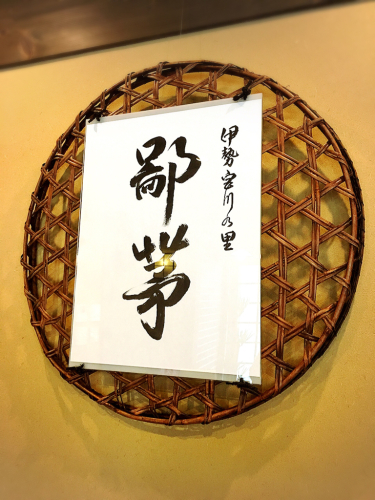 伊勢宮川の里
鄙茅